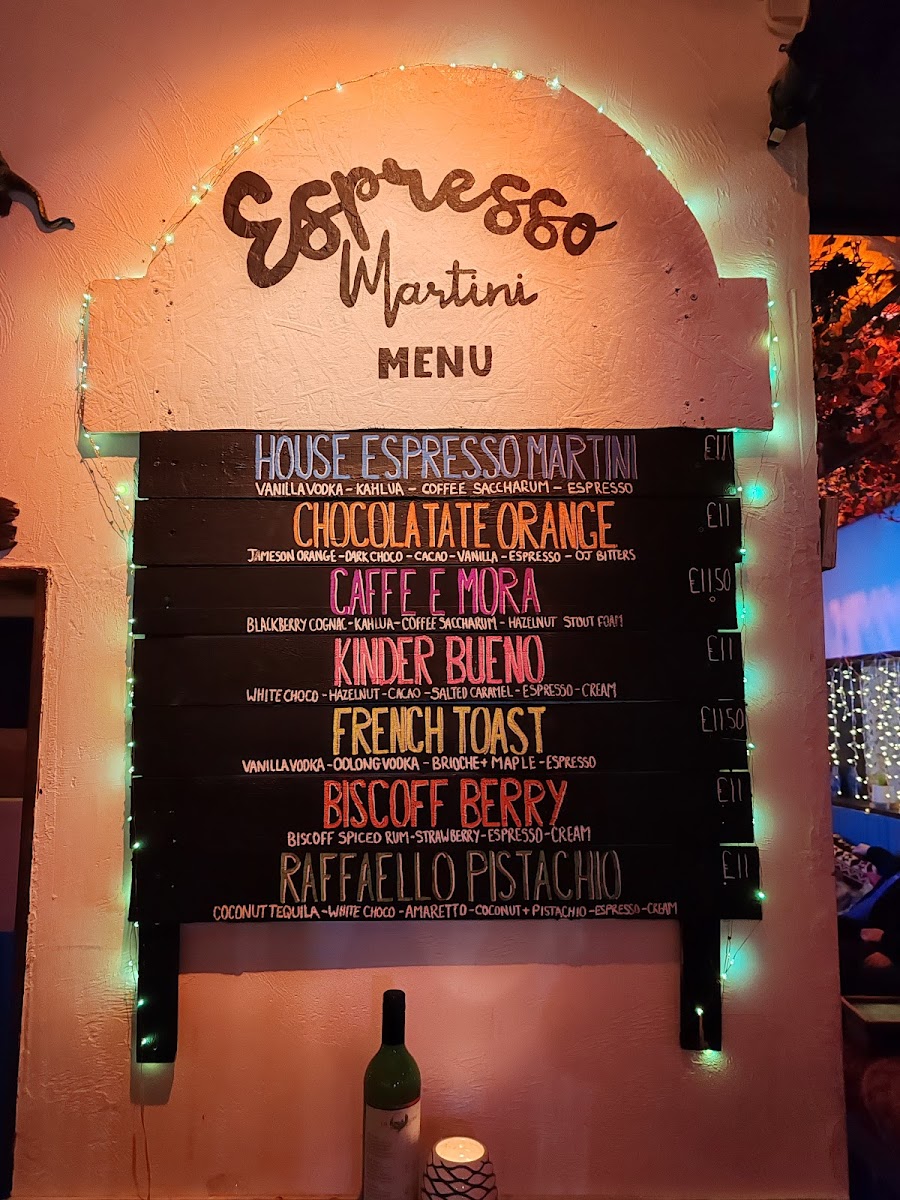 Espresso
Martini
MENU
HOUSE ESPRESSO MARTINI £11
VANILLA VODKA - KAHLUA - COFFEE SACCHARUM - ESPRESSO
CHOCOLATATE ORANGE £11
JAMESON ORANGE - DARK CHOCO - CACAO - VANILLA - ESPRESSO - OJ BITTERS
CAFFE E MORA £11.50
BLACKBERRY COGNAC - KAHLUA - COFFEE SACCHARUM - HAZELNUT STOUT FOAM
KINDER BUENO £11
WHITE CHOCO - HAZELNUT - CACAO - SALTED CARAMEL - ESPRESSO - CREAM
FRENCH TOAST £11.50
VANILLA VODKA - OOLONG VODKA - BRIOCHE + MAPLE - ESPRESSO
BISCOFF BERRY £11
BISCOFF SPICED RUM - STRAWBERRY - ESPRESSO - CREAM
RAFFAELLO PISTACHIO £11
COCONUT TEQUILA - WHITE CHOCO - AMARETTO - COCONUT + PISTACHIO - ESPRESSO - CREAM